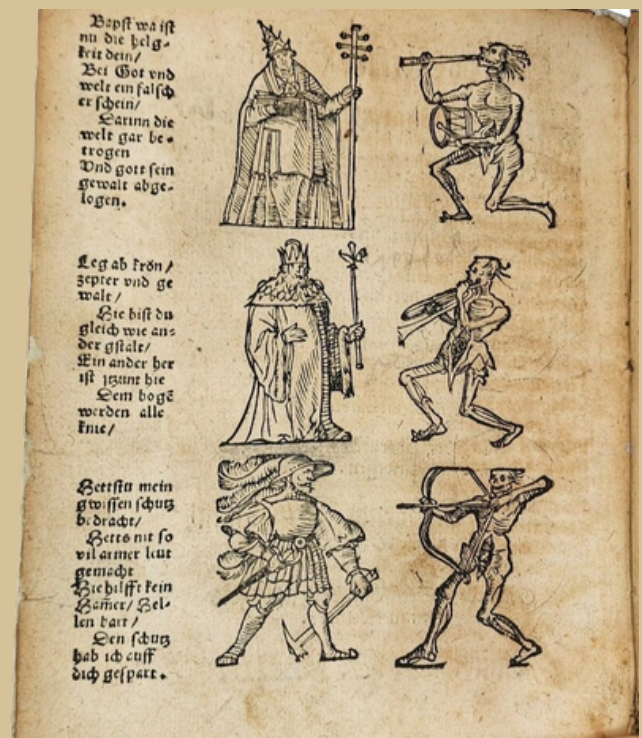 Bapst wa ist
nu die helg-
keit dein/
Bei Got vnd
welt ein falsch
er schein/
Darinn die
welt gar be-
trogen
Vnd gott sein
gewalt abge-
logen.
Leg ab krön/
zepter vnd ge
walt/
Hie bist du
gleich wie an-
der gstalt/
Ein ander her
ist jtzunt hie
Dem bogē
werden alle
knie/
Hettstu mein
gwissen schutz
bedracht/
Hetts nit so
vil armer leut
gemacht
Hie hilfft kein
Ham̄er/ Hel-
len bart/
Den schutz
hab ich auff
dich gespart.